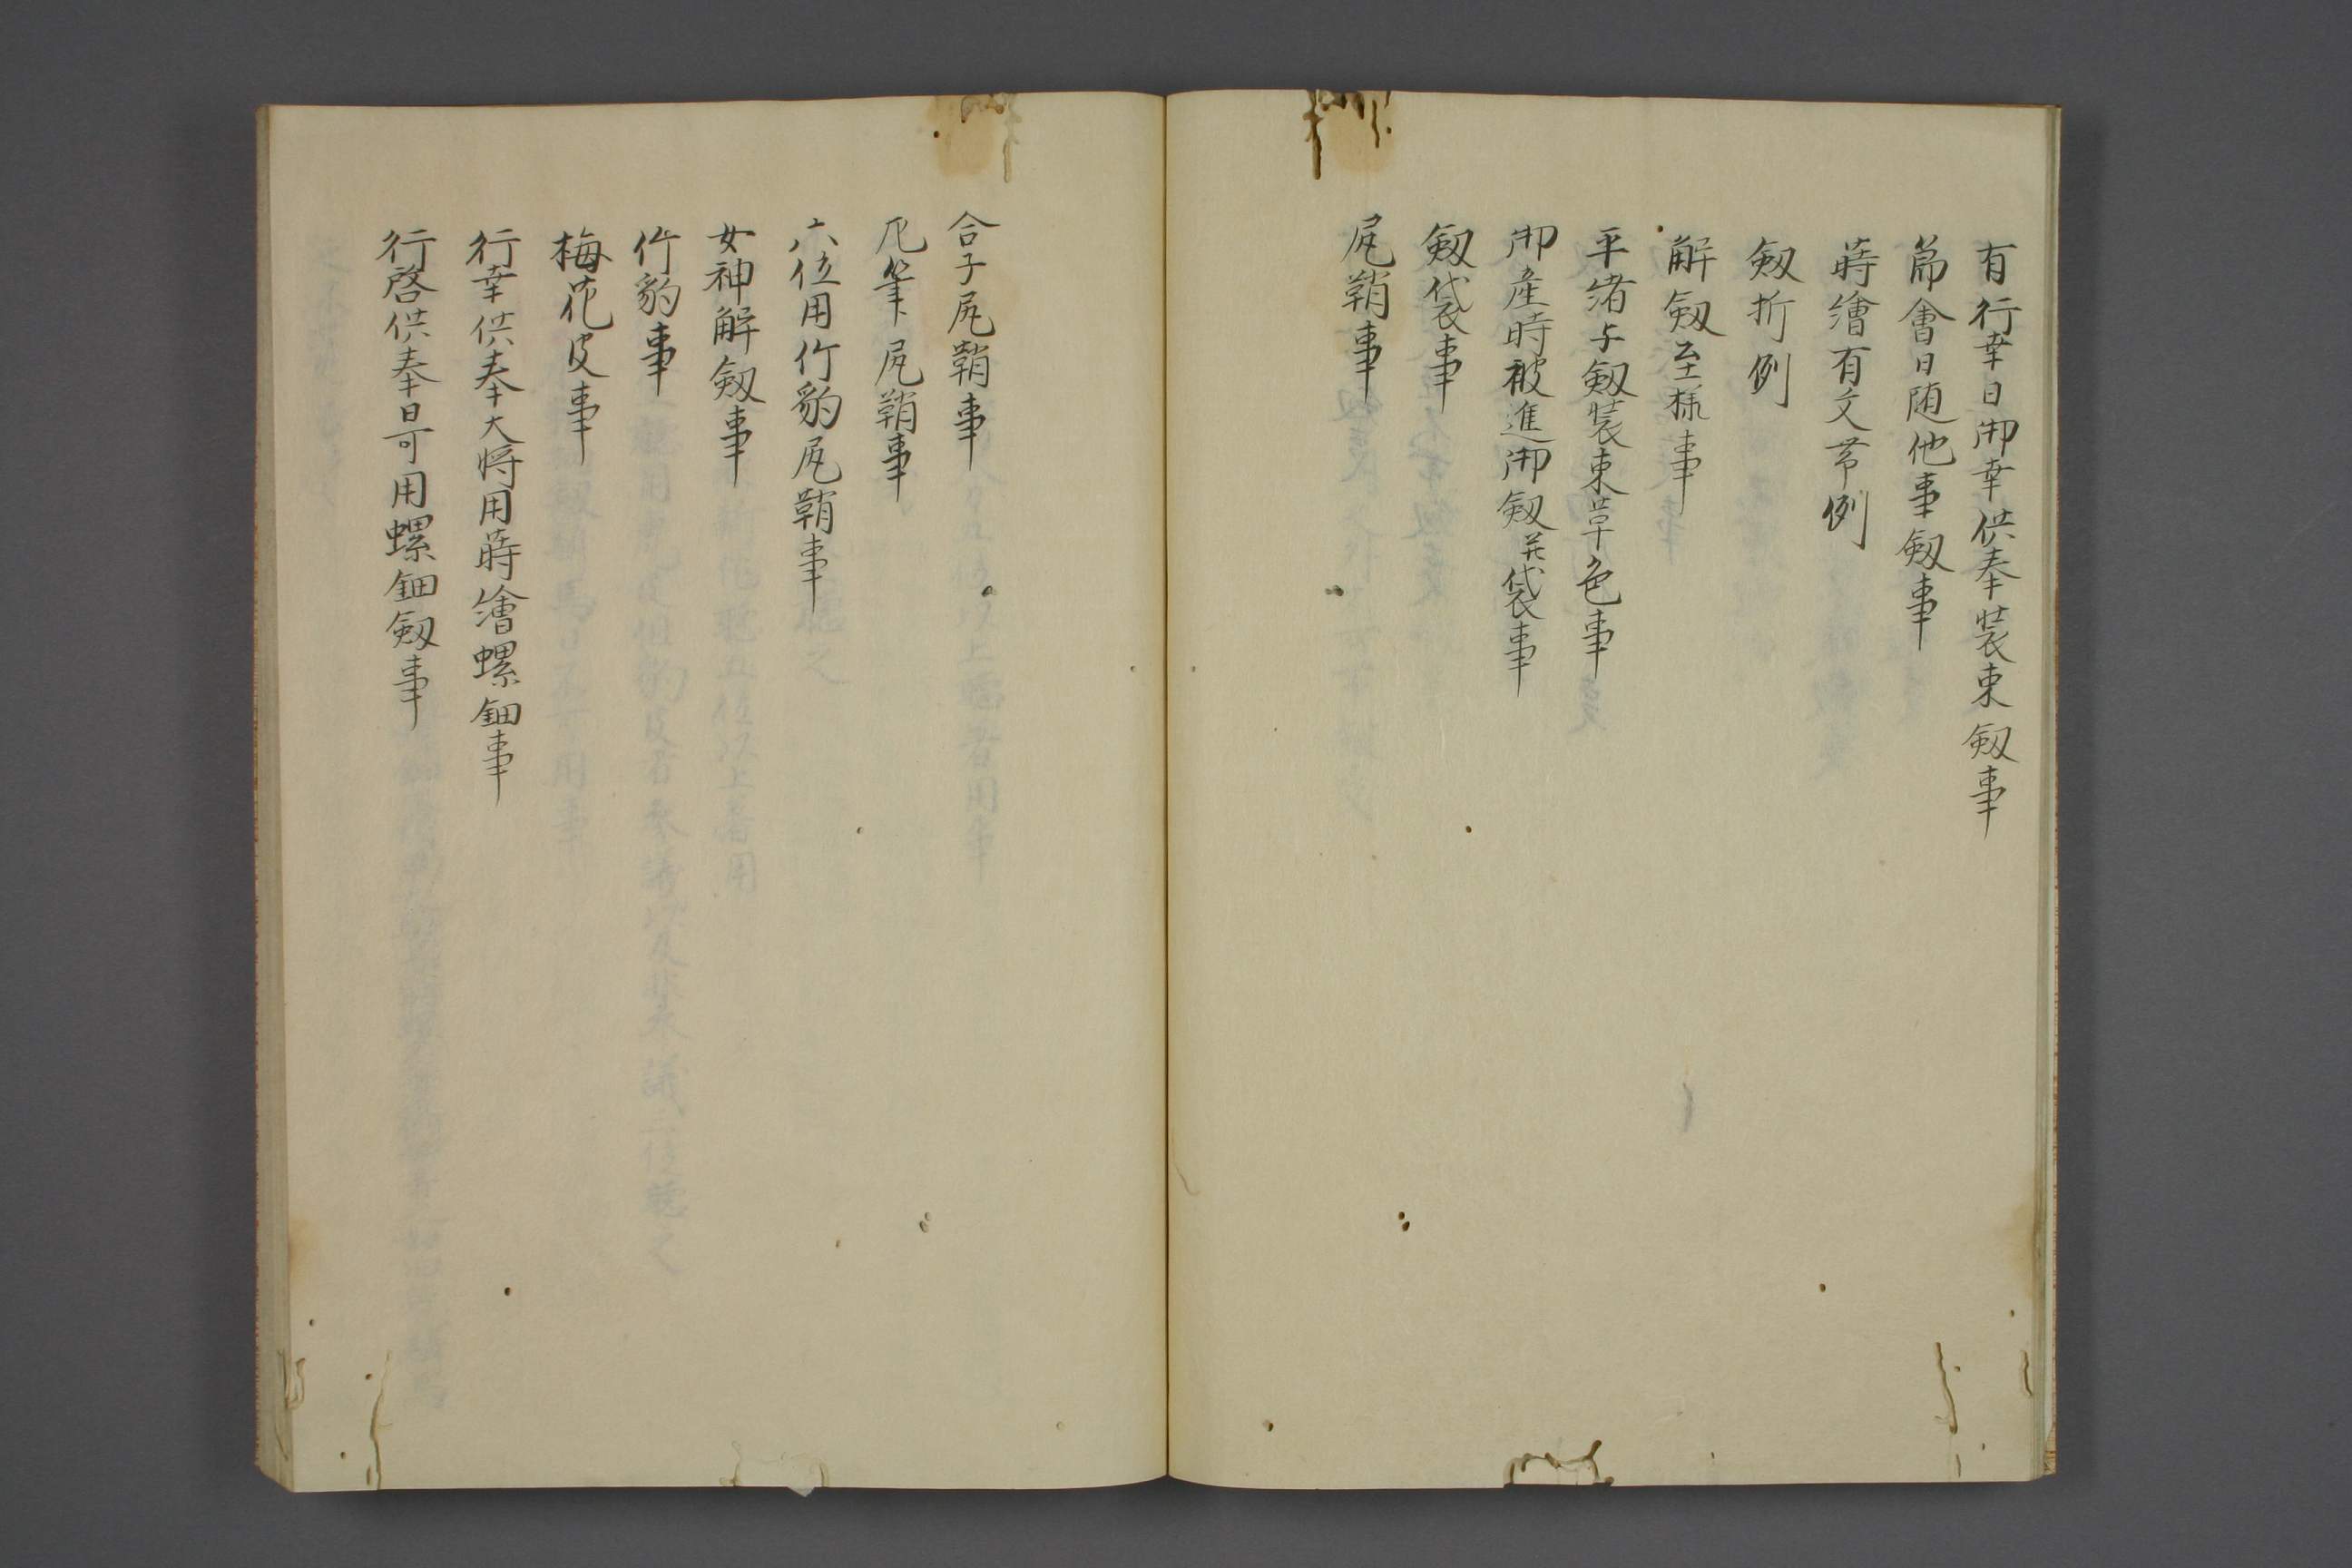 有行幸日御幸供奉装束釼事
節會日随他事釼事
蒔繪有文帯例
釼折例
解釼至様事
平緒与釼装束草色事
御産時被進御釼并袋事
釼袋事
尻鞘事
合子尻鞘事
尻鞘事
六位用竹豹尻鞘事
女神解釼事
竹豹事
梅花皮事
行幸供奉大将用蒔繪螺鈿事
行啓供奉日可用螺鈿釼事